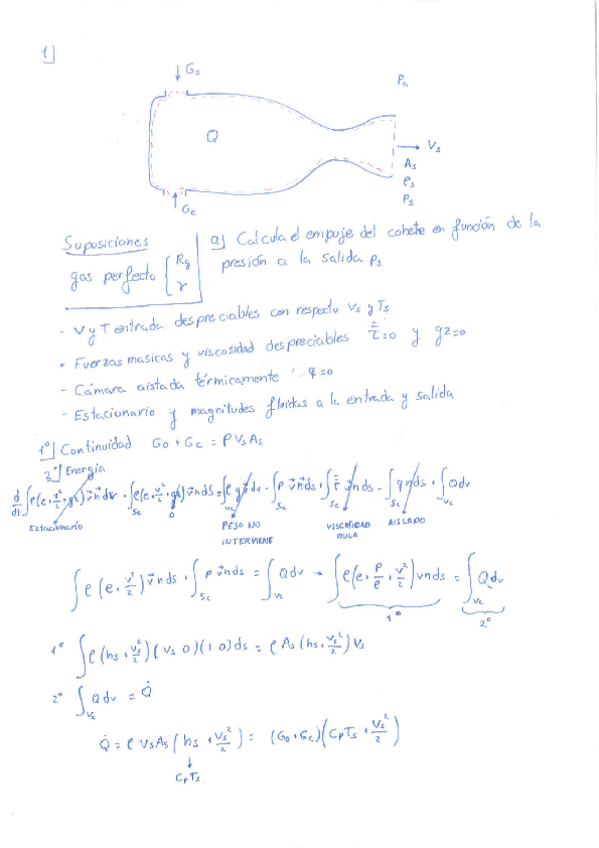 1]
G₀
Pₐ
Q
Vₛ
Aₛ
ρₛ
Pₛ
G_c
Suposiciones
gas perfecto { R_g
γ
a] Calcula el empuje del cohete en función de la
presión a la salida pₛ
- V y T entrada despreciables con respecto Vₛ y Tₛ
- Fuerzas masicas y viscosidad despreciables τ̿=0 y gz=0
- Cámara aislada térmicamente q=0
- Estacionario y magnitudes fluidas a la entrada y salida
1º] Continuidad G₀+G_c = ρVₛAₛ
2º] Energía
Estacionario
0
PESO NO
INTERVIENE
VISCOSIDAD
NULA
AISLADO
∫ρ(e+v²/2)v⃗n ds + ∫_{Sc} p v⃗n ds = ∫_{Vc} Q dv → ∫ρ(e+p/ρ+v²/2)vn ds = ∫_{Vc} Q dv
1º
2º
1º ∫ρ(hₛ+Vₛ²/2)(Vₛ 0)(1 0)ds = ρAₛ(hₛ+Vₛ²/2)Vₛ
2º ∫_{Vc} Q dv = Q̇
Q̇ = ρVₛAₛ(hₛ+Vₛ²/2) = (G₀+G_c)(C_pTₛ+Vₛ²/2)
↓
C_pTₛ